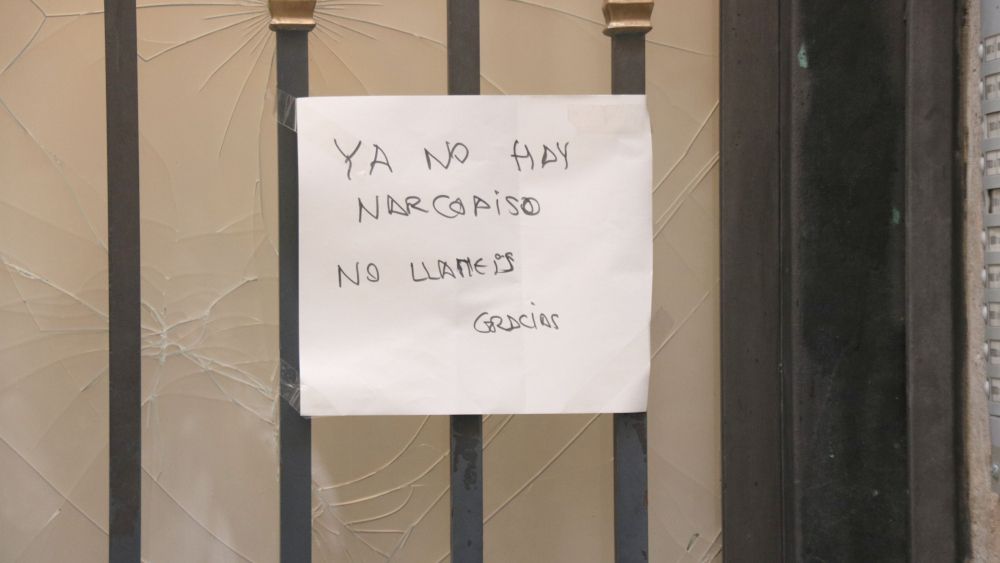 YA NO HAY
NARCOPISO
NO LLAMEIS
GRACIAS